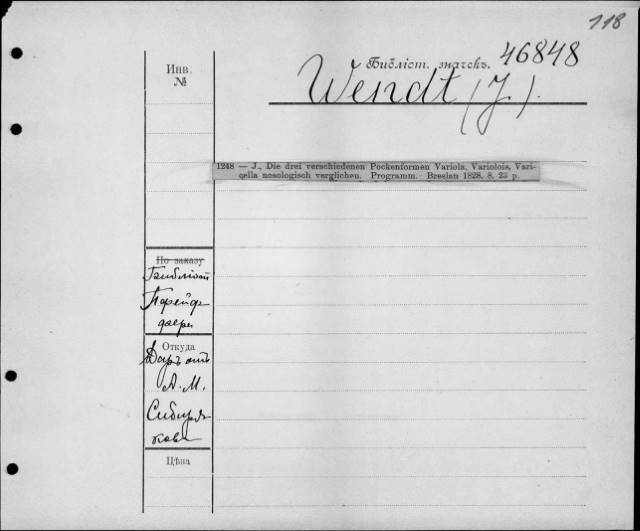 118
Библіот. значекъ. 46848
Wendt (J.).
Инв.
№
1248 — J., Die drei verschiedenen Pockenformen Variola, Variolois, Vari-
cella nosologisch verglichen. Programm. Breslau 1828. 8. 23 p.
По заказу
Библіот
Пфейф
фера
Откуда
Даръ отъ
А. М.
Сибиря
кова
Цѣна